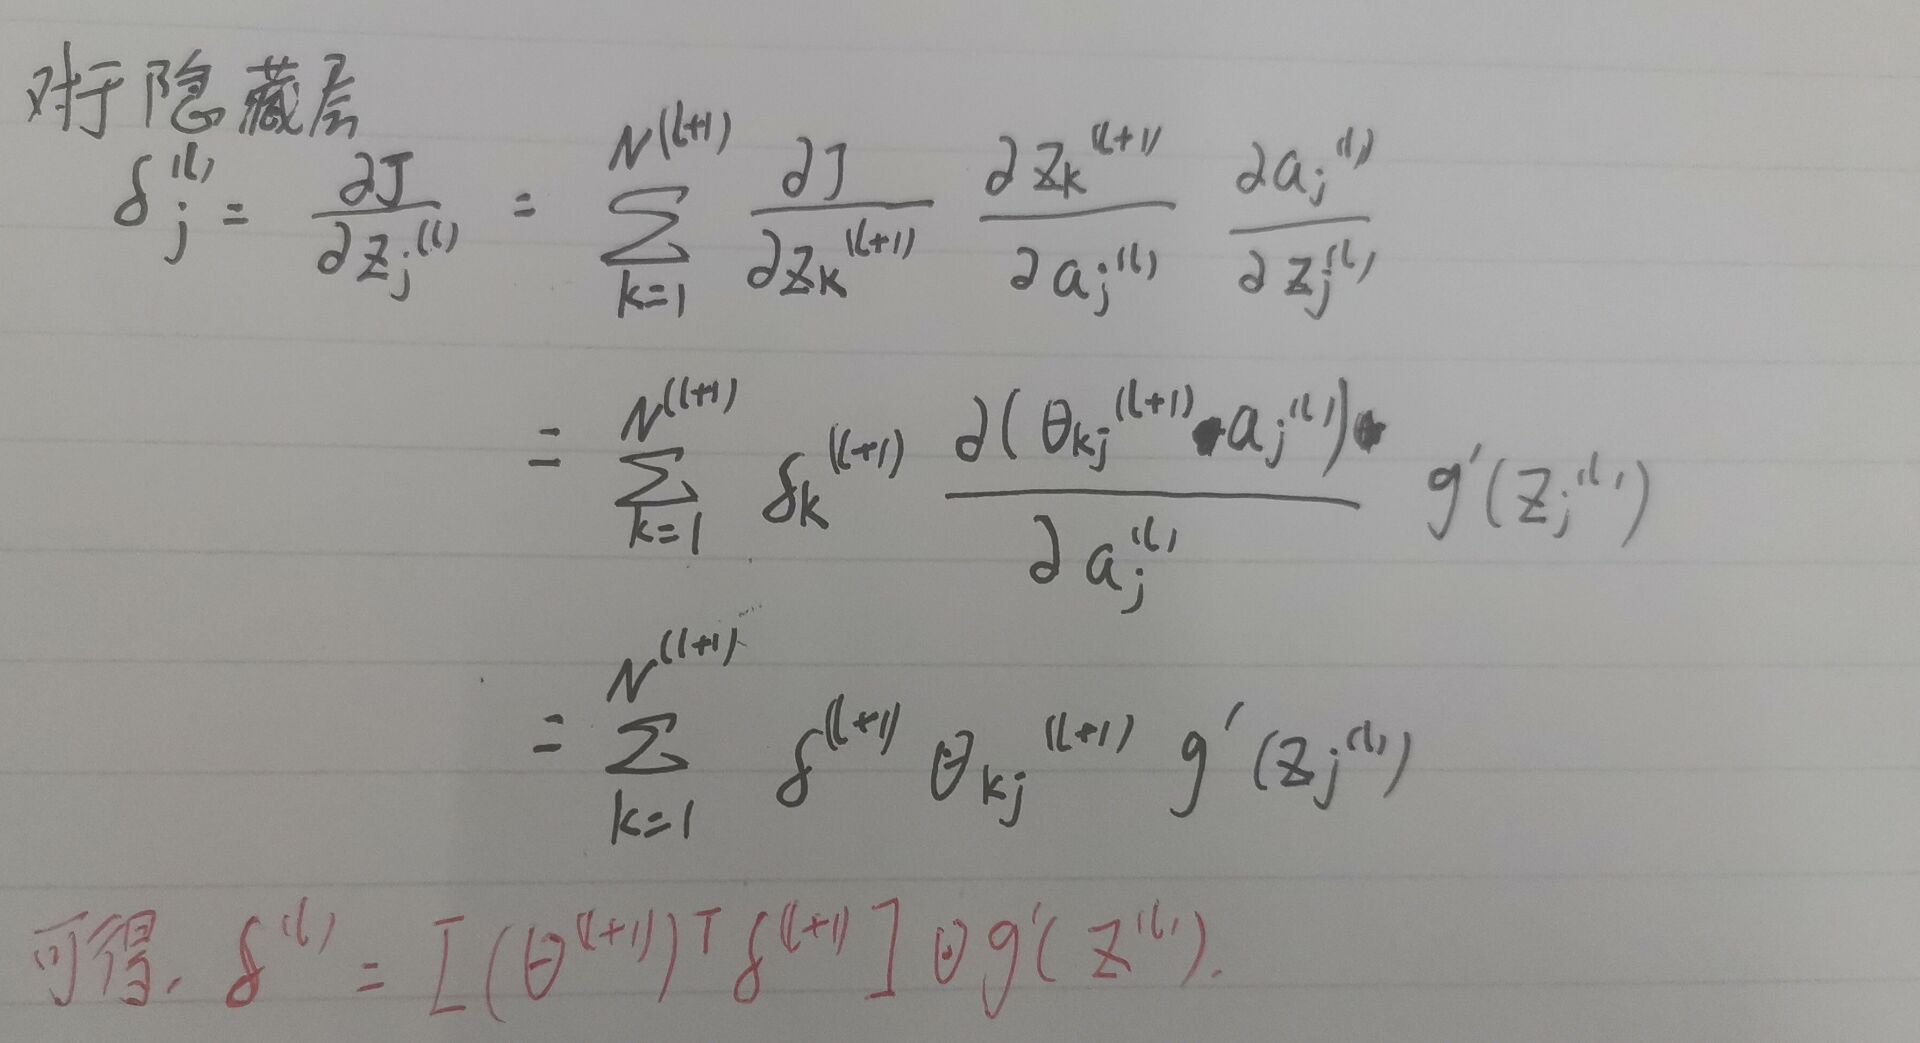 对于隐藏层
δ_j^{(l)} = \frac{∂J}{∂z_j^{(l)}} = \sum_{k=1}^{N^{(l+1)}} \frac{∂J}{∂z_k^{(l+1)}} \frac{∂z_k^{(l+1)}}{∂a_j^{(l)}} \frac{∂a_j^{(l)}}{∂z_j^{(l)}}
= \sum_{k=1}^{N^{(l+1)}} δ_k^{(l+1)} \frac{∂(θ_{kj}^{(l+1)} a_j^{(l)})}{∂a_j^{(l)}} g'(z_j^{(l)})
= \sum_{k=1}^{N^{(l+1)}} δ^{(l+1)} θ_{kj}^{(l+1)} g'(z_j^{(l)})
可得, δ^{(l)} = [(θ^{(l+1)})^T δ^{(l+1)}] ⊙ g'(z^{(l)}).